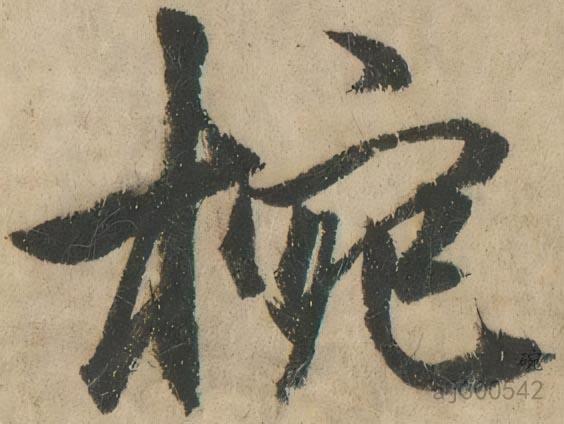 椀
碗
ajg00542